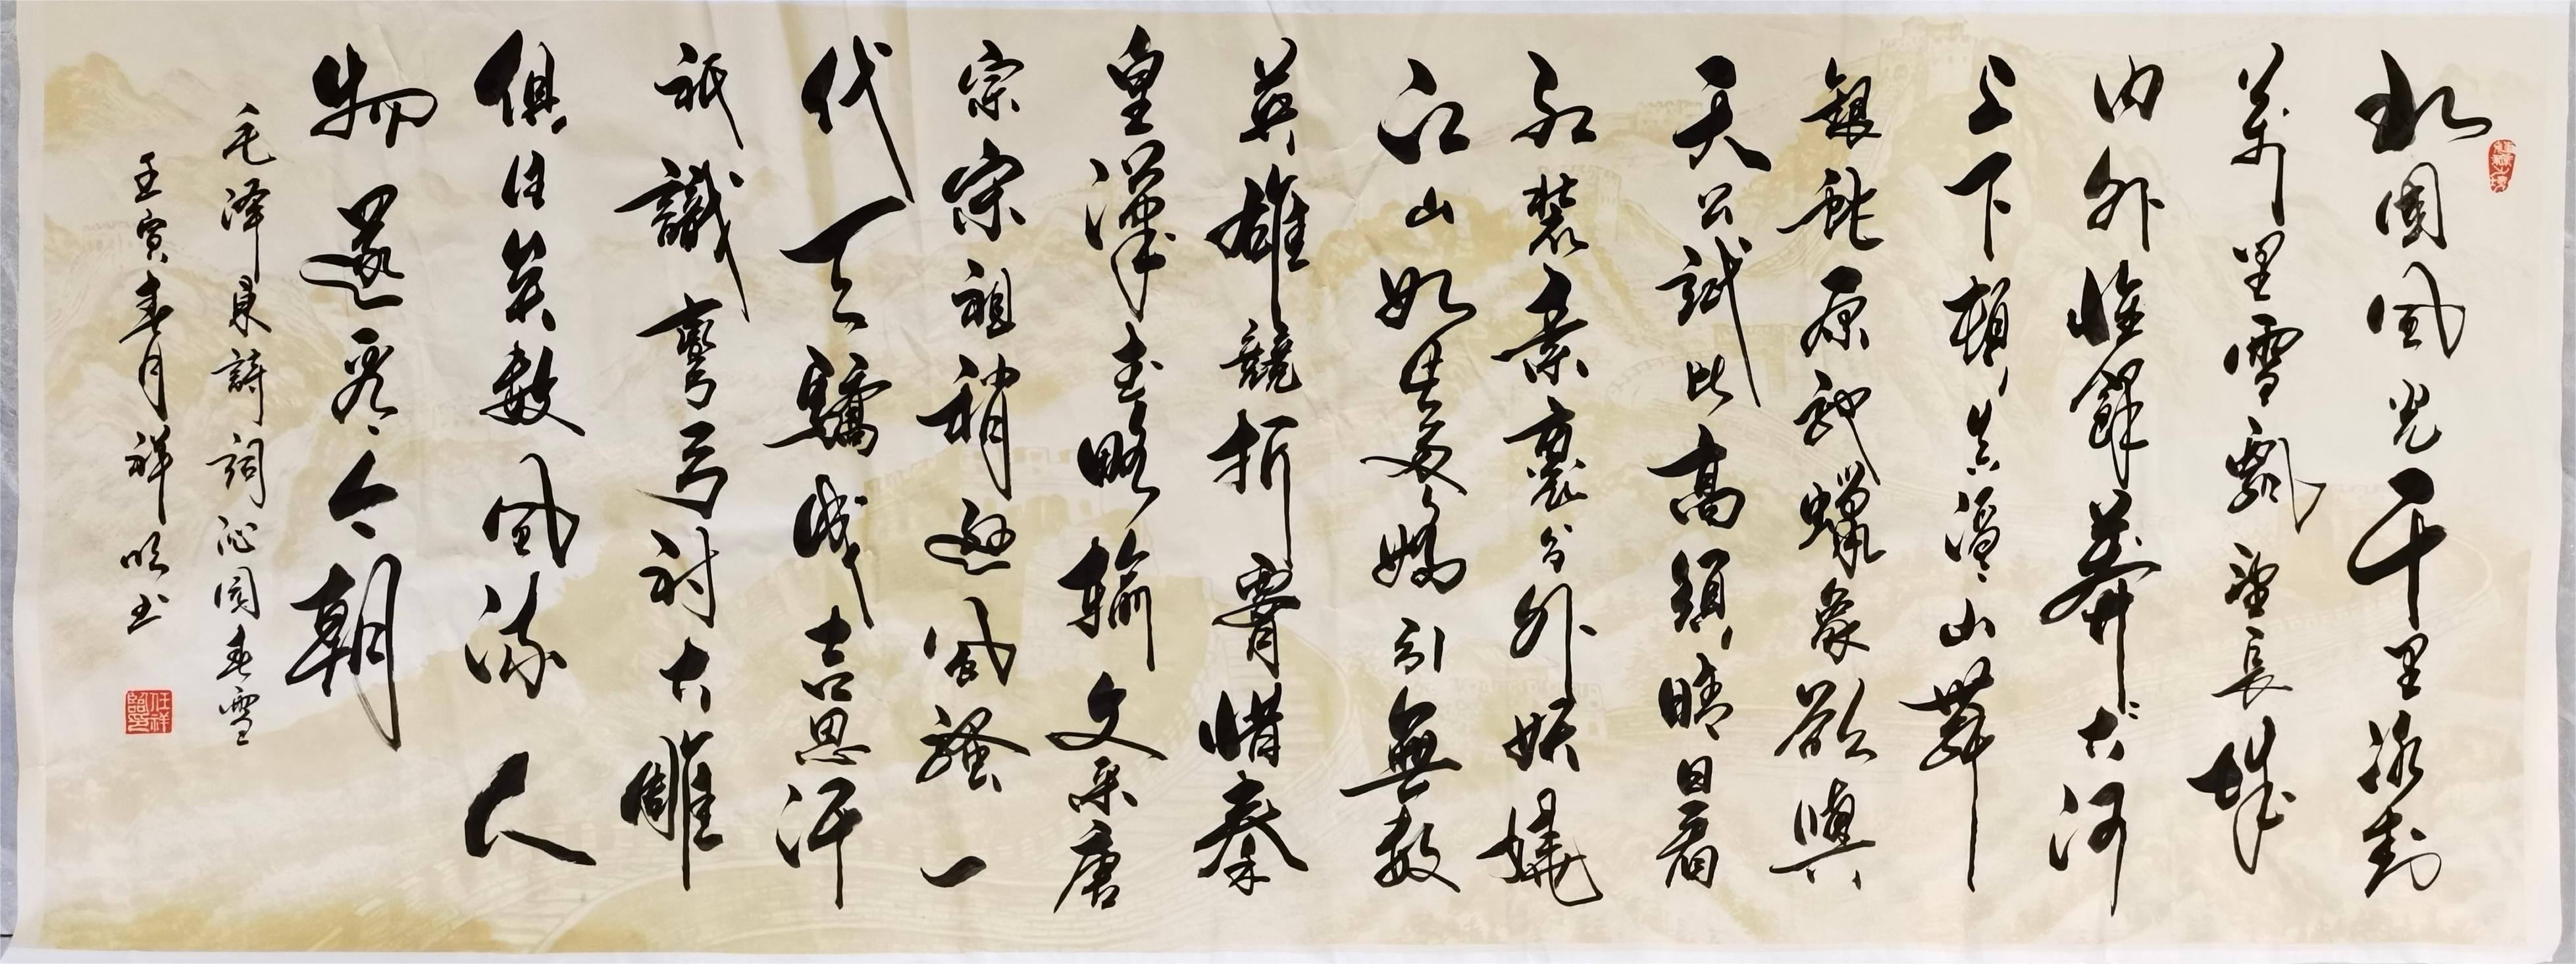 北國风光千里冰封
萬里雪飄望長城
内外惟餘莽〻大河
上下頓失滔〻山舞
銀蛇原馳蠟象欲與
天公試比高須晴日看
红装素裹分外妖嬈
江山如此多嬌引無数
英雄競折腰惜秦
皇漢武略輸文采唐
宗宋祖稍遜风騷一
代天驕成吉思汗
祇識彎弓射大雕
俱往矣数风流人
物還看今朝
毛泽東詩詞沁園春雪
壬寅春月祥明书